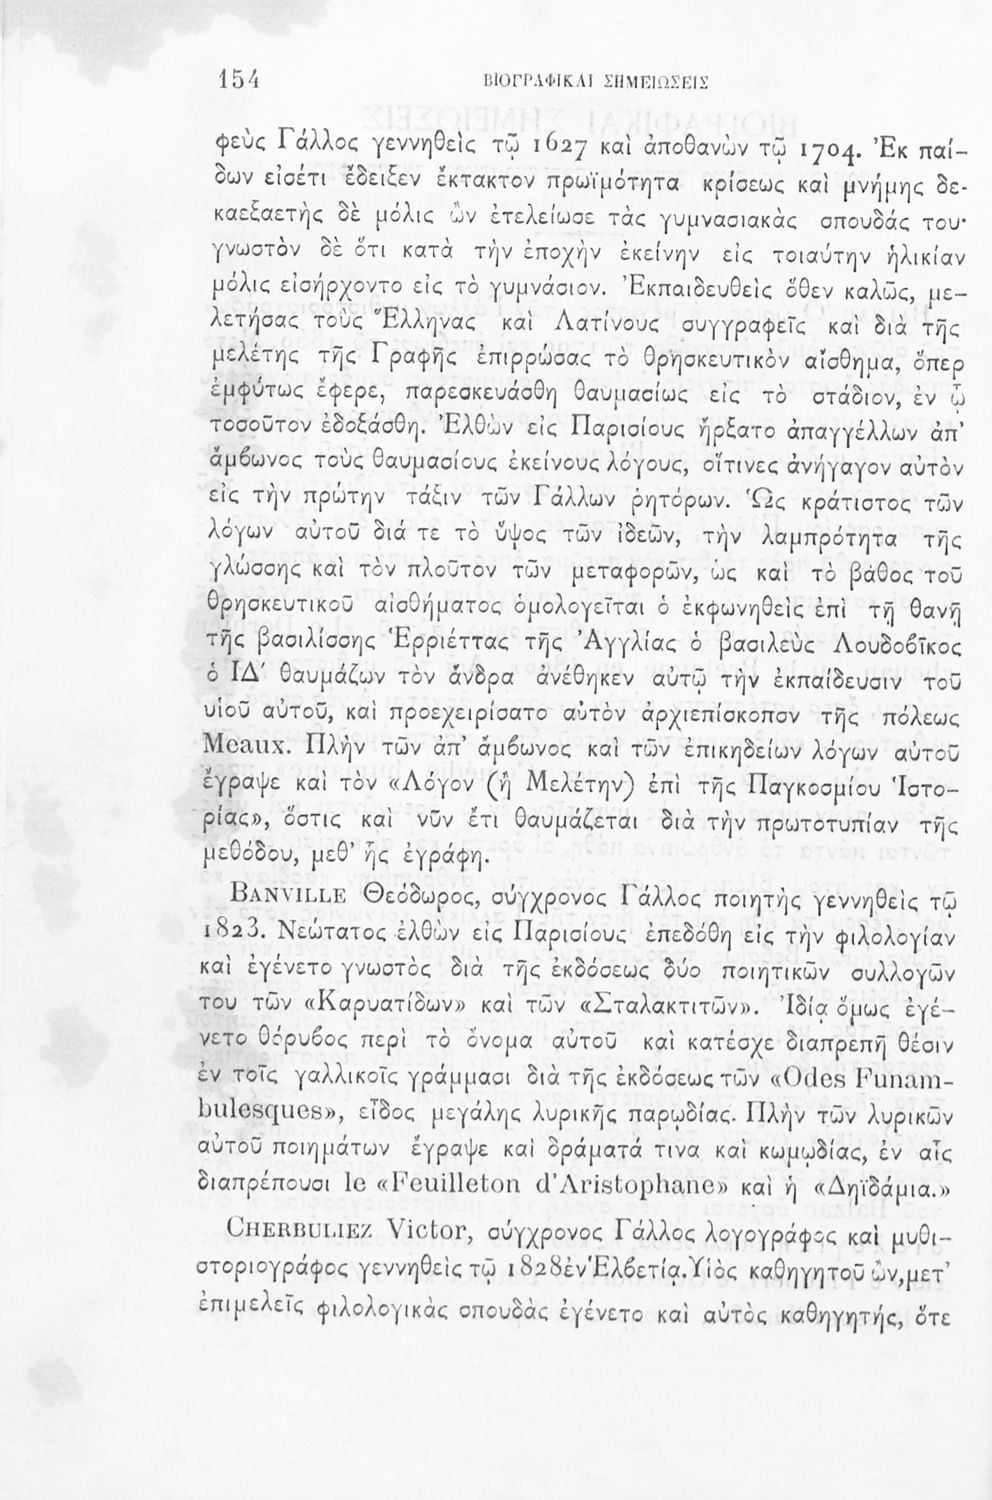 154 ΒΙΟΓΡΑΦΙΚΑΙ ΣΗΜΕΙΩΣΕΙΣ
φεὺς Γάλλος γεννηθεὶς τῷ 1627 καὶ ἀποθανὼν τῷ 1704. Ἐκ παί-
δων εἰσέτι ἔδειξεν ἔκτακτον πρωϊμότητα κρίσεως καὶ μνήμης δε-
καεξαετὴς δὲ μόλις ὢν ἐτελείωσε τὰς γυμνασιακὰς σπουδάς του·
γνωστὸν δὲ ὅτι κατὰ τὴν ἐποχὴν ἐκείνην εἰς τοιαύτην ἡλικίαν
μόλις εἰσήρχοντο εἰς τὸ γυμνάσιον. Ἐκπαιδευθεὶς ὅθεν καλῶς, με-
λετήσας τοὺς Ἕλληνας καὶ Λατίνους συγγραφεῖς καὶ διὰ τῆς
μελέτης τῆς Γραφῆς ἐπιρρώσας τὸ θρησκευτικὸν αἴσθημα, ὅπερ
ἐμφύτως ἔφερε, παρεσκευάσθη θαυμασίως εἰς τὸ στάδιον, ἐν ᾧ
τοσοῦτον ἐδοξάσθη. Ἐλθὼν εἰς Παρισίους ἤρξατο ἀπαγγέλλων ἀπ'
ἄμβωνος τοὺς θαυμασίους ἐκείνους λόγους, οἵτινες ἀνήγαγον αὐτὸν
εἰς τὴν πρώτην τάξιν τῶν Γάλλων ῥητόρων. Ὡς κράτιστος τῶν
λόγων αὐτοῦ διά τε τὸ ὕψος τῶν ἰδεῶν, τὴν λαμπρότητα τῆς
γλώσσης καὶ τὸν πλοῦτον τῶν μεταφορῶν, ὡς καὶ τὸ βάθος τοῦ
θρησκευτικοῦ αἰσθήματος ὁμολογεῖται ὁ ἐκφωνηθεὶς ἐπὶ τῇ θανῇ
τῆς βασιλίσσης Ἑρριέττας τῆς Ἀγγλίας ὁ βασιλεὺς Λουδοβῖκος
ὁ ΙΔ' θαυμάζων τὸν ἄνδρα ἀνέθηκεν αὐτῷ τὴν ἐκπαίδευσιν τοῦ
υἱοῦ αὐτοῦ, καὶ προεχειρίσατο αὐτὸν ἀρχιεπίσκοπον τῆς πόλεως
Meaux. Πλὴν τῶν ἀπ' ἄμβωνος καὶ τῶν ἐπικηδείων λόγων αὐτοῦ
ἔγραψε καὶ τὸν «Λόγον (ἢ Μελέτην) ἐπὶ τῆς Παγκοσμίου Ἱστο-
ρίας», ὅστις καὶ νῦν ἔτι θαυμάζεται διὰ τὴν πρωτοτυπίαν τῆς
μεθόδου, μεθ' ἧς ἐγράφη.
BANVILLE Θεόδωρος, σύγχρονος Γάλλος ποιητὴς γεννηθεὶς τῷ
1823. Νεώτατος ἐλθὼν εἰς Παρισίους ἐπεδόθη εἰς τὴν φιλολογίαν
καὶ ἐγένετο γνωστὸς διὰ τῆς ἐκδόσεως δύο ποιητικῶν συλλογῶν
του τῶν «Καρυατίδων» καὶ τῶν «Σταλακτιτῶν». Ἰδίᾳ ὅμως ἐγέ-
νετο θόρυβος περὶ τὸ ὄνομα αὐτοῦ καὶ κατέσχε διαπρεπῆ θέσιν
ἐν τοῖς γαλλικοῖς γράμμασι διὰ τῆς ἐκδόσεως τῶν «Odes Funam-
bulesques», εἶδος μεγάλης λυρικῆς παρῳδίας. Πλὴν τῶν λυρικῶν
αὐτοῦ ποιημάτων ἔγραψε καὶ δράματά τινα καὶ κωμῳδίας, ἐν αἷς
διαπρέπουσι le «Feuilleton d'Aristophane» καὶ ἡ «Δηϊδάμια.»
CHERBULIEZ Victor, σύγχρονος Γάλλος λογογράφος καὶ μυθι-
στοριογράφος γεννηθεὶς τῷ 1828 ἐν Ἑλβετίᾳ. Υἱὸς καθηγητοῦ ὢν, μετ'
ἐπιμελεῖς φιλολογικὰς σπουδὰς ἐγένετο καὶ αὐτὸς καθηγητής, ὅτε